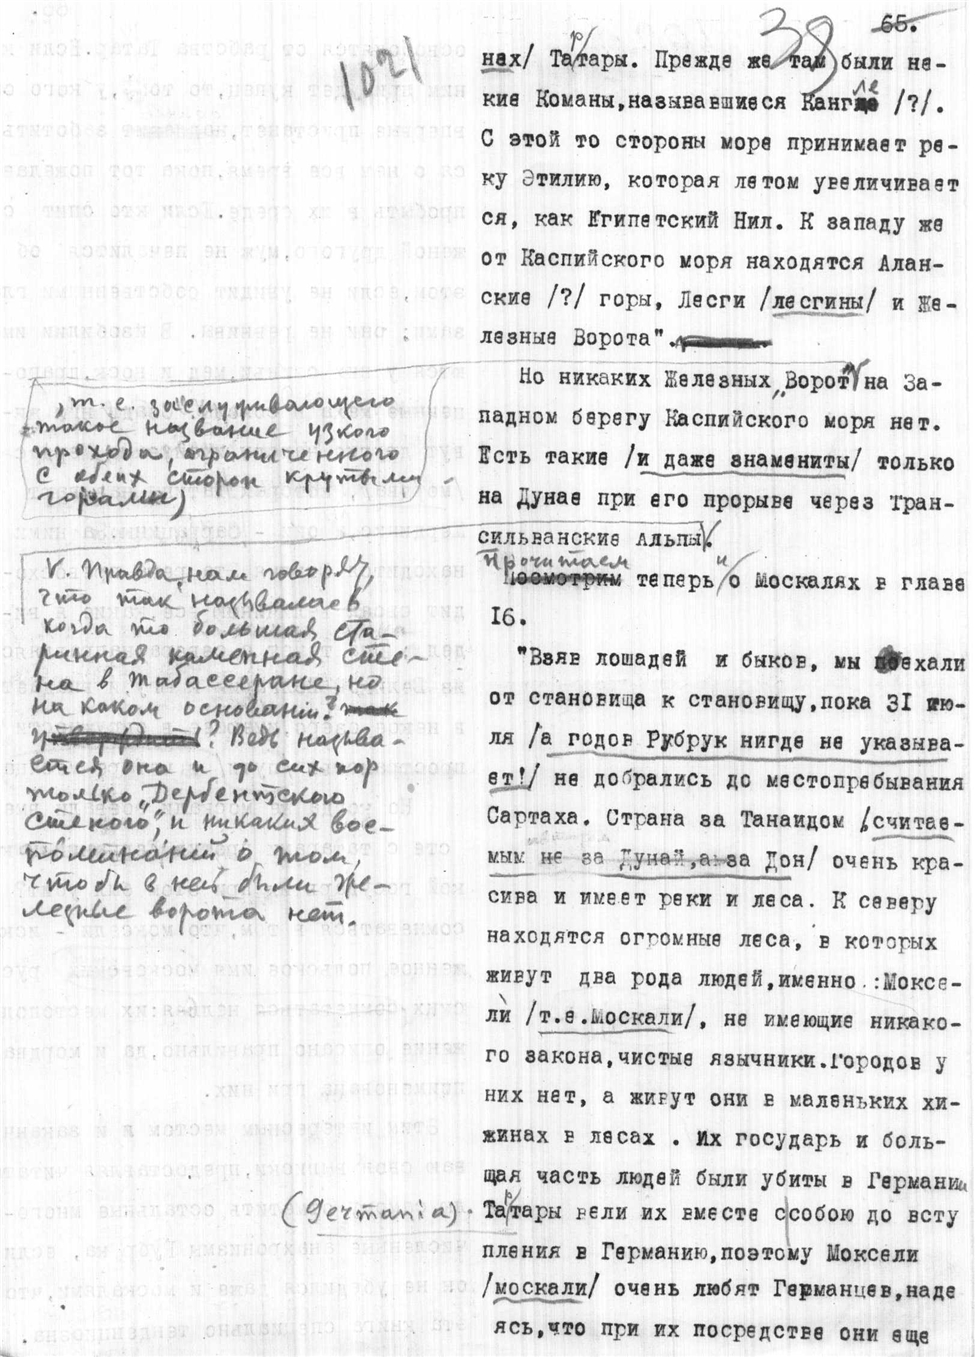 65.
38
1021
нах/ Тартары. Прежде же там были не-
кие Команы,называвшиеся Кангле /?/.
С этой то стороны море принимает ре-
ку Этилию, которая летом увеличивает
ся, как Египетский Нил. К западу же
от Каспийского моря находятся Алан-
ские /?/ горы, Лесги /лесгины/ и Же-
лезные Ворота".
Но никаких Железных „Ворот" на За-
падном берегу Каспийского моря нет.
Есть такие /и даже знамениты/ только
на Дунае при его прорыве через Тран-
сильванские Альпы.
т.е. заслуживающего
такое название узкого
прохода, ограниченного
с обеих сторон крутыми
горами,
V. Правда, нам говорят,
что так называлась
когда то большая ста-
ринная каменная сте-
на в Табассеране, но
на каком основании?
Ведь называ-
ется она и до сих пор
только „Дербентскою
стеною", и никаких вос-
поминаний о том,
чтобы в ней были же-
лезные ворота нет.
Прочитаем
Посмотрим теперь и о Москалях в главе
16.
"Взяв лошадей и быков, мы поехали
от становища к становищу,пока 31 ию-
ля /а годов Рубрук нигде не указыва-
ет!/ не добрались до местопребывания
Сартаха. Страна за Танаидом /считае-
мым не за Дунай,а за Дон/ очень кра-
сива и имеет реки и леса. К северу
находятся огромные леса, в которых
живут два рода людей,именно :Моксе-
ли /т.е.Москали/, не имеющие никако-
го закона,чистые язычники.Городов у
них нет, а живут они в маленьких хи-
жинах в лесах . Их государь и боль-
щая часть людей были убиты в Германии
(Germania). Тартары вели их вместе с собою до всту
пления в Германию,поэтому Моксели
/москали/ очень любят Германцев,наде
ясь,что при их посредстве они еще